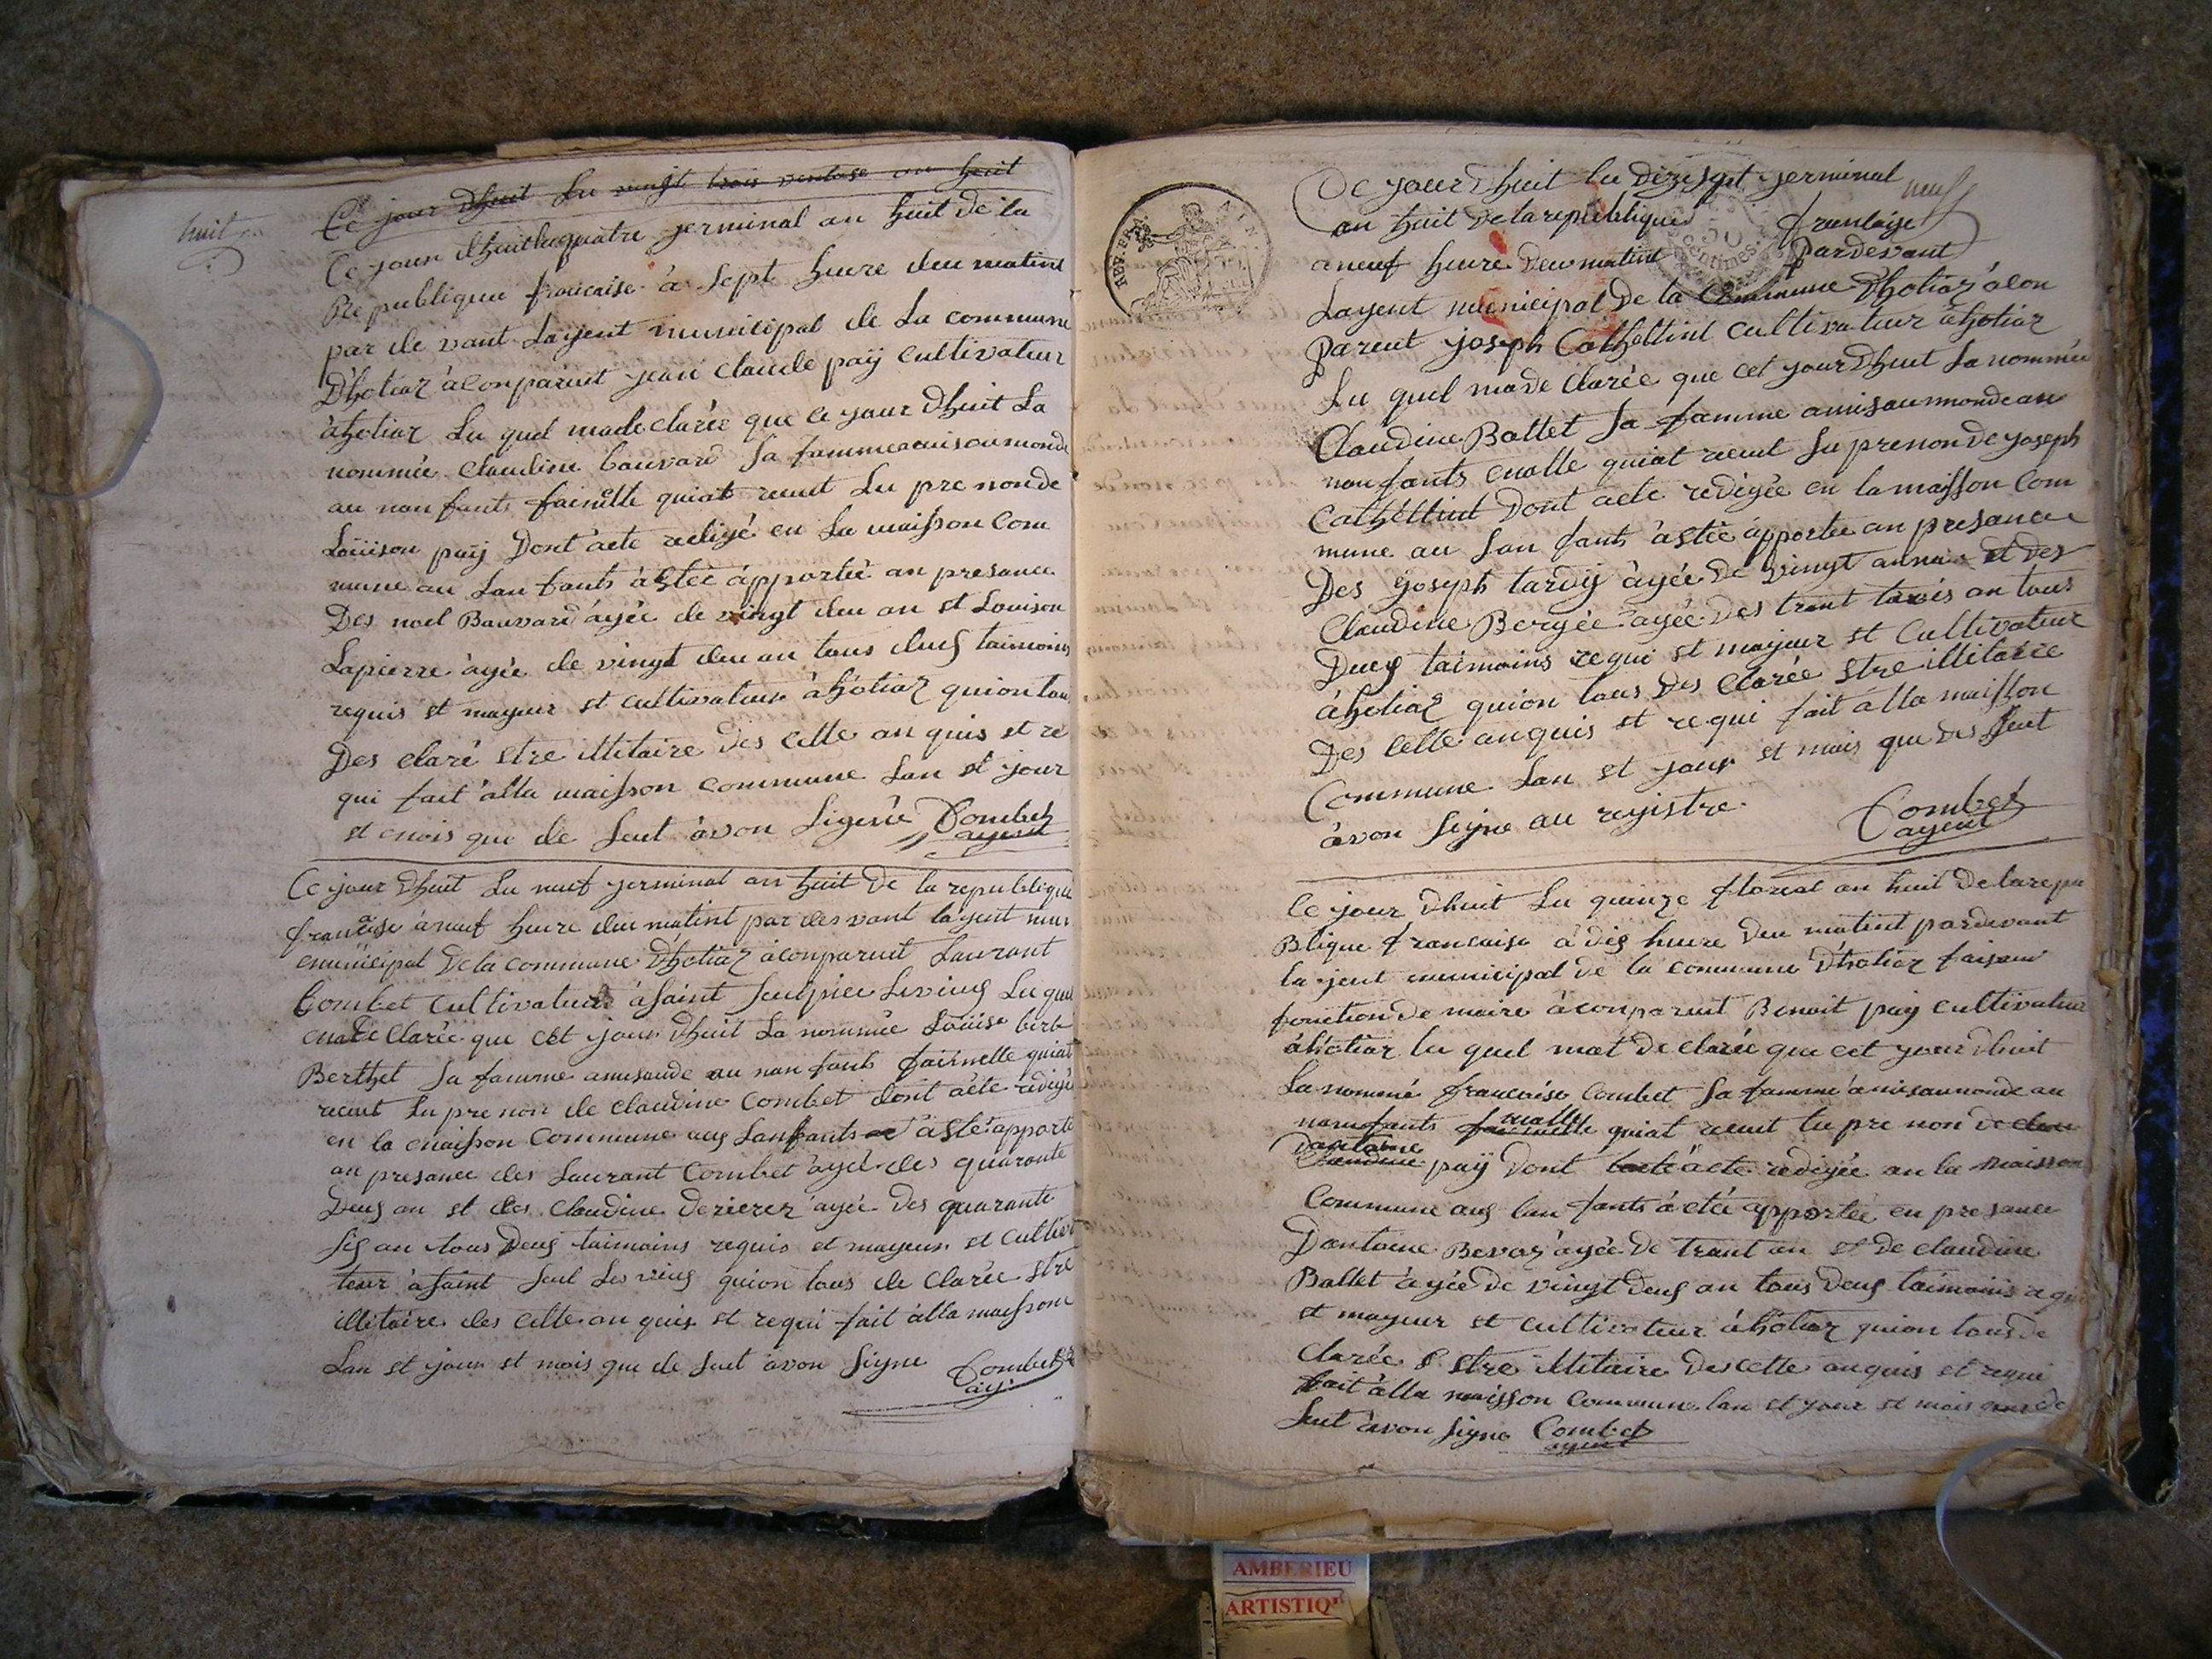 huit
Ce jour dhuit Lu vingt trois ventose an huit
Ce jour dhuit lu quatre germinal an huit de la
Republique francaise à sept heure deu matint
par de vant Lagent municipal de La commune
D'hotiaz àconparuit jean claude paÿ cultivateur
àhotiaz Lu quel made clarée que ce jour dhuit La
nommée claudine bauvard sa famme amis au monde
au nan fants faimelle quiat reeut Lu pre non de
Loüison paÿ Dont acte redigé en La maisson Com
mune au Lan fants àstée àpportée an presance
Des noel Bauvard àgée de vingt deu an et Louison
Lapierre àgée de vingt deu an tous deus taimoins
requis et mayeur et cultivateur àhotiaz quion tou
Des claré estre illitaire des cette an quis et re
qui fait àlla maisson commune Lan et jour
et mois que de Seut àvon Signée Combet
agent
Ce jour Dhuit Lu neuf germinal an huit De la republique
francaise àneuf heure deu matint par des vant lagent mu
municipal De la commune D'hotiaz àconparuit Laurant
Combet cultivateur àSaint Seulpice Levieus Lu quel
made Clarée que cet jour Dhuit La nommée Loüise birb
Berthet Sa famme amisaude au nan fants faimelle quiat
reeut Lu pre non de claudine Combet dont acte redigée
en la maisson Commune aus Lanfants àstée àpporté
an presance des Laurant Combet àgée des quarante
Deus an et des claudine Derierez àgée Des quarante
Sis an tous Deus taimoins requis et mayeur et Cultiva
teur àSaint Seul Levieus quion tous de clarée estre
illitaire des cette an quis et requi fait àlla maisson
Lan et jour et mois que de Seut àvon Signe Combet
ag.
REP. FRA. AIN.
50 Centimes.
neuf
Ce jour Dhuit lu Dizesept germinal
an huit De la republique francaise
aneuf heure Deu matint Pardevant
Lagent municipal De la Commune D'hotiaz àcon
Pareut joseph Cathellint Cultivateur àhotiaz
Lu quel made Clarée que cet jour Dhuit La nommée
Claudine Ballet Sa famme amisaumonde an
nanfants malle quiat reeut Lu prenon De joseph
Cathéllint Dont acte redigée en la maisson Com
mune au Lan fants àstée àpportée an presance
Des joseph tardÿ àgée De vingt annee et Des
Claudine Bergée àgée Des trent trois an tous
Deus taimoins requi et mayeur et Cultivateur
àhotiaz quion tous Des Clarée estre illitaire
Des Cette anquis et requi fait àlla maisson
Commune Lan et jour et mois que Des Seut
àvon Signe au registre. Combet
agent
Ce jour Dhuit Lu quinze floreal an huit De larepu
Blique francaise à dis heure Deu matint pardevant
la jent municipal de la commune D'hotiaz faisant
fonction De maire àconparuit Benoit paÿ cultivateur
àhotiaz lu quel mat De clarée que cet jour dhuit
La nommé francoise Combet Sa famme amisaumonde au
malle
nanfants faimelle quiat reeut lu pre non De clau
Dantoine
Claudine paÿ Dont acte redigée an la maisson
Commune aus lan fants à etée àpportée en presance
Dantoine Bevoz àgée De trant an et de claudine
Ballet àgée De vingt Deus an tous Deus taimoins requi
et mayeur et cultivateur àhotiaz quion tous De
Clarée estre illitaire Des cette anquis et requi
fait àlla maisson Commune lan et jour et mois que de
Seut àvon Signe Combet
agent
AMBERIEU
ARTISTIQ